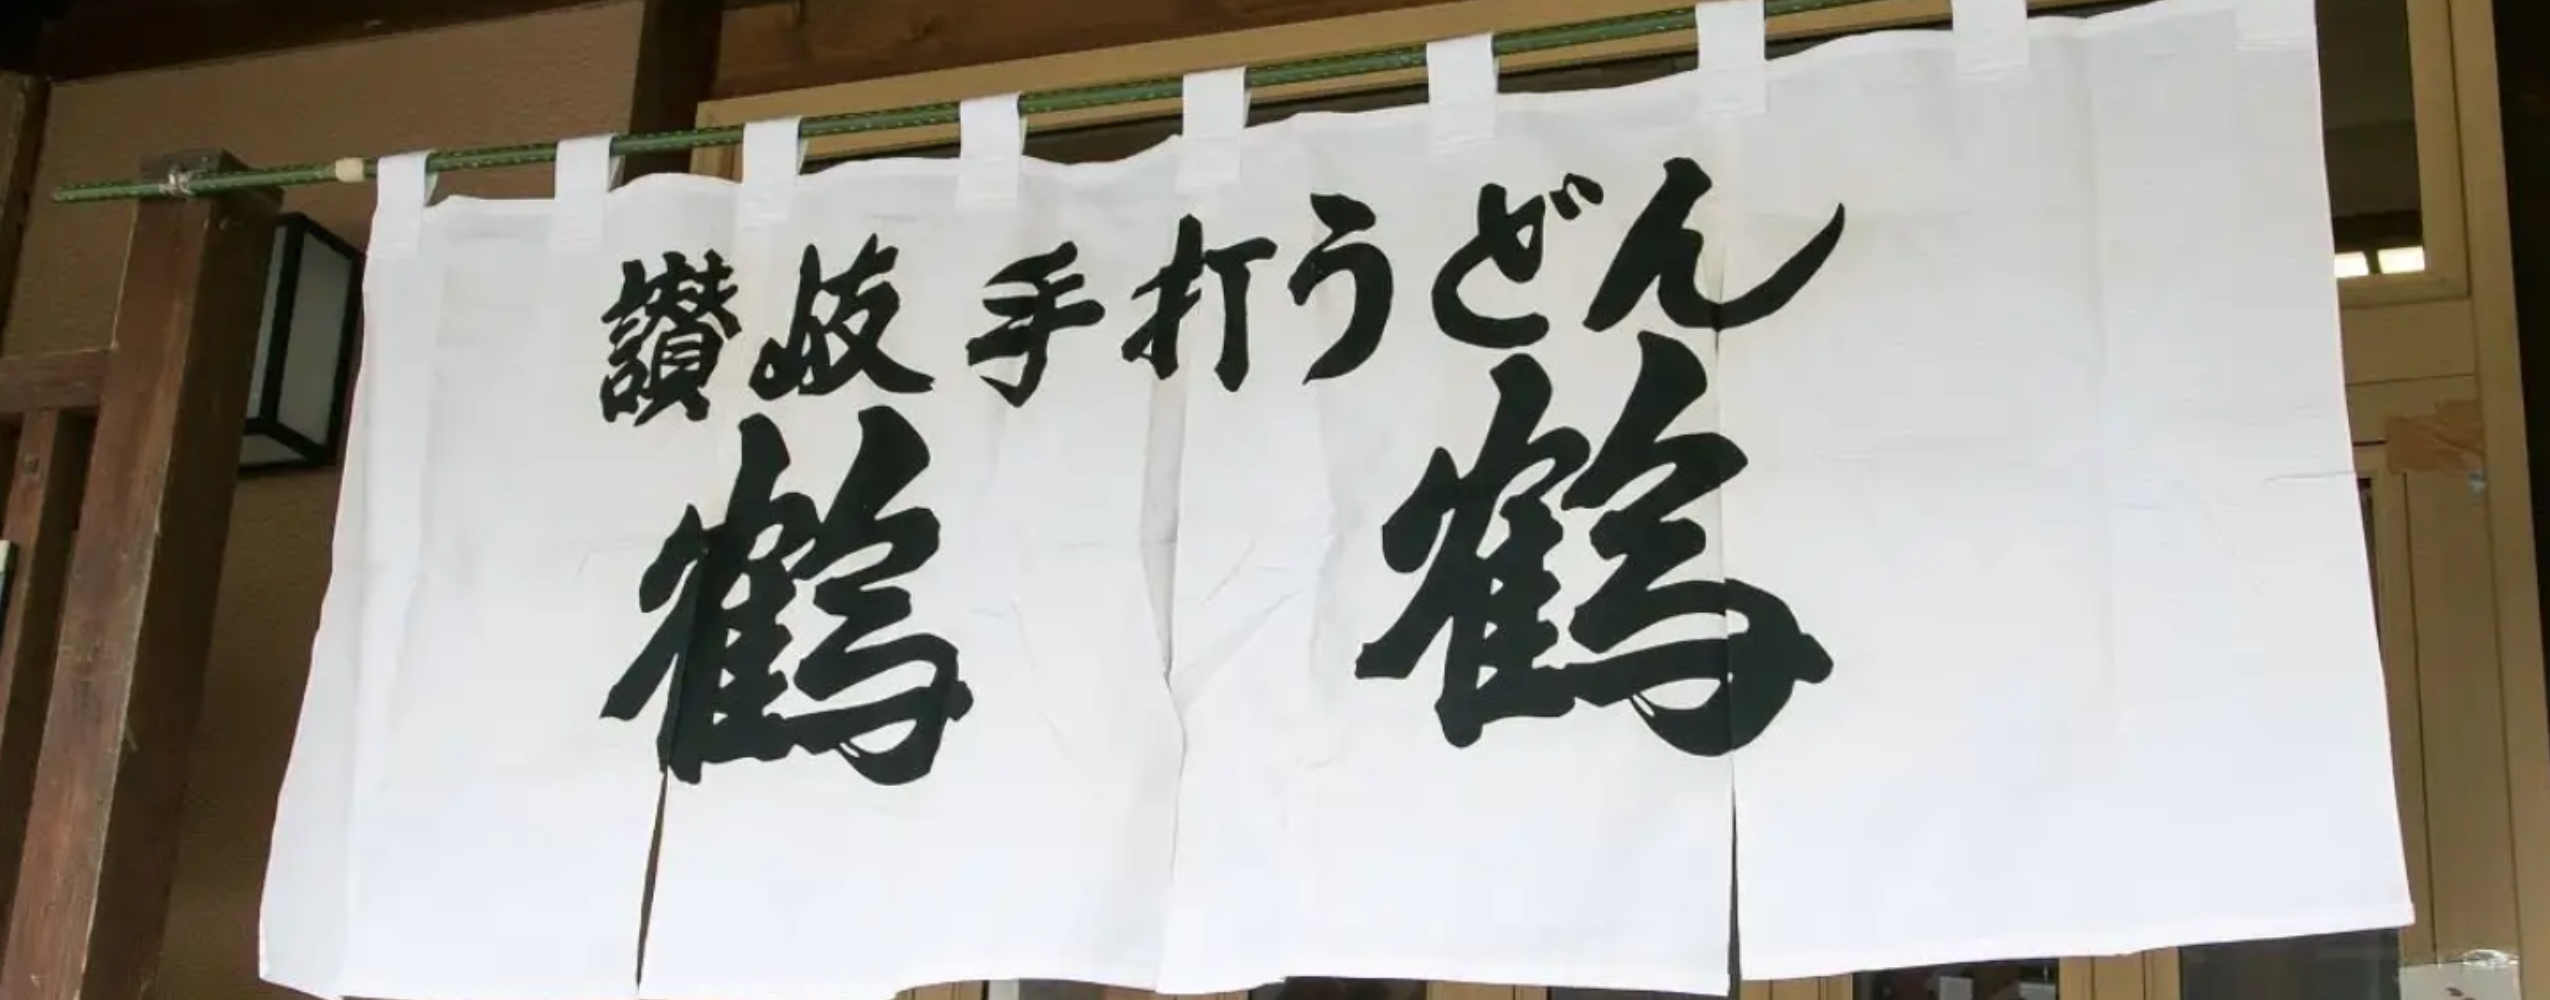 讃岐手打うどん
鶴 鶴